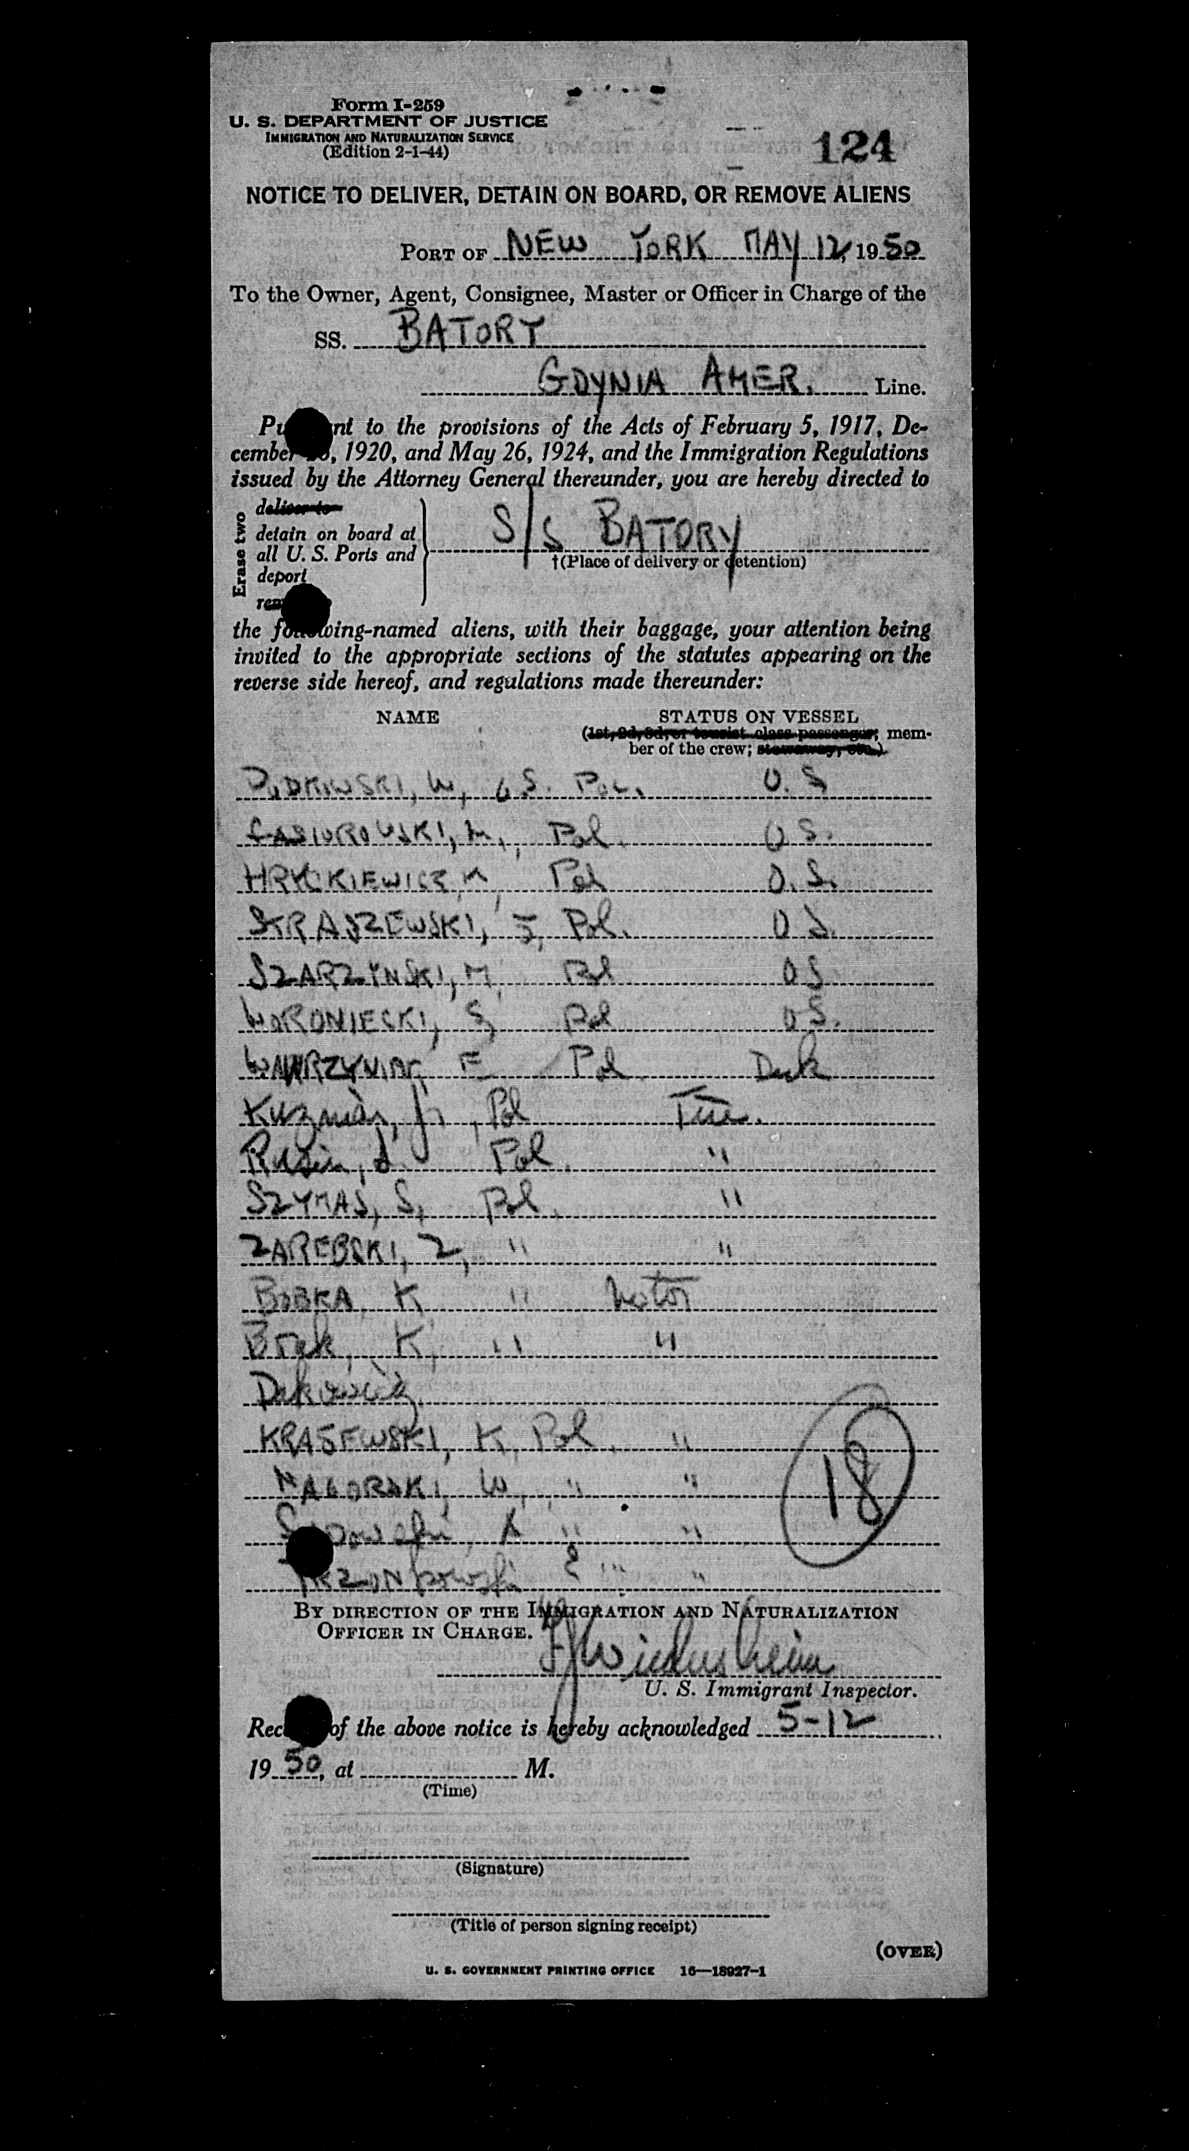 Form I-259
U. S. DEPARTMENT OF JUSTICE
IMMIGRATION AND NATURALIZATION SERVICE
(Edition 2-1-44)
124
NOTICE TO DELIVER, DETAIN ON BOARD, OR REMOVE ALIENS
PORT OF NEW YORK MAY 12, 1950
To the Owner, Agent, Consignee, Master or Officer in Charge of the
SS. BATORY
GDYNIA AMER. Line.
to the provisions of the Acts of February 5, 1917, De-
cember , 1920, and May 26, 1924, and the Immigration Regulations
issued by the Attorney General thereunder, you are hereby directed to
Erase two
deliver to
detain on board at
all U. S. Ports and
deport
S/S BATORY
†(Place of delivery or detention)
the following-named aliens, with their baggage, your attention being
invited to the appropriate sections of the statutes appearing on the
reverse side hereof, and regulations made thereunder:
NAME STATUS ON VESSEL
(1st, 2d, 3d, or tourist class passenger; mem-
ber of the crew; stowaway, etc.)
W, Pol. O. S
Pol. O S.
Pol O. S.
STRASZEWSKI, J, Pol. O S.
SZARZYNSKI, M, Pol O S
WORONIECKI, S, Pol O S.
F Pol Deck
Kuzmar, J, Pol
Rusin, Pol. "
SZYMAS, S, Pol. "
ZAREBSKI, Z, " "
BOBKA, K " Motor
Brak, K, " "
KRASEWSKI, K, Pol. "
NAGORSKI, W, " "
" "
" "
18
BY DIRECTION OF THE IMMIGRATION AND NATURALIZATION
OFFICER IN CHARGE.
U. S. Immigrant Inspector.
of the above notice is hereby acknowledged 5-12
1950, at M.
(Time)
(Signature)
(Title of person signing receipt)
(OVER)
U. S. GOVERNMENT PRINTING OFFICE 16—18927-1